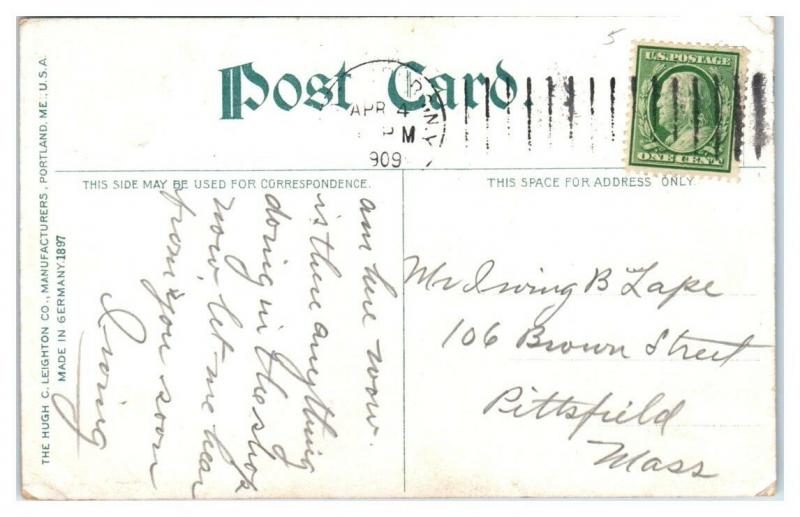 5
Post Card.
U.S. POSTAGE
ONE CENT
N.Y.
APR 4
PM
909
THIS SIDE MAY BE USED FOR CORRESPONDENCE.
THIS SPACE FOR ADDRESS ONLY.
THE HUGH C. LEIGHTON CO., MANUFACTURERS, PORTLAND, ME., U.S.A.
MADE IN GERMANY. 1897
am here now.
is there anything
doing in the shop
now, let me hear
from you soon
Irving
Mr Irving B Lape
106 Brown Street
Pittsfield
Mass